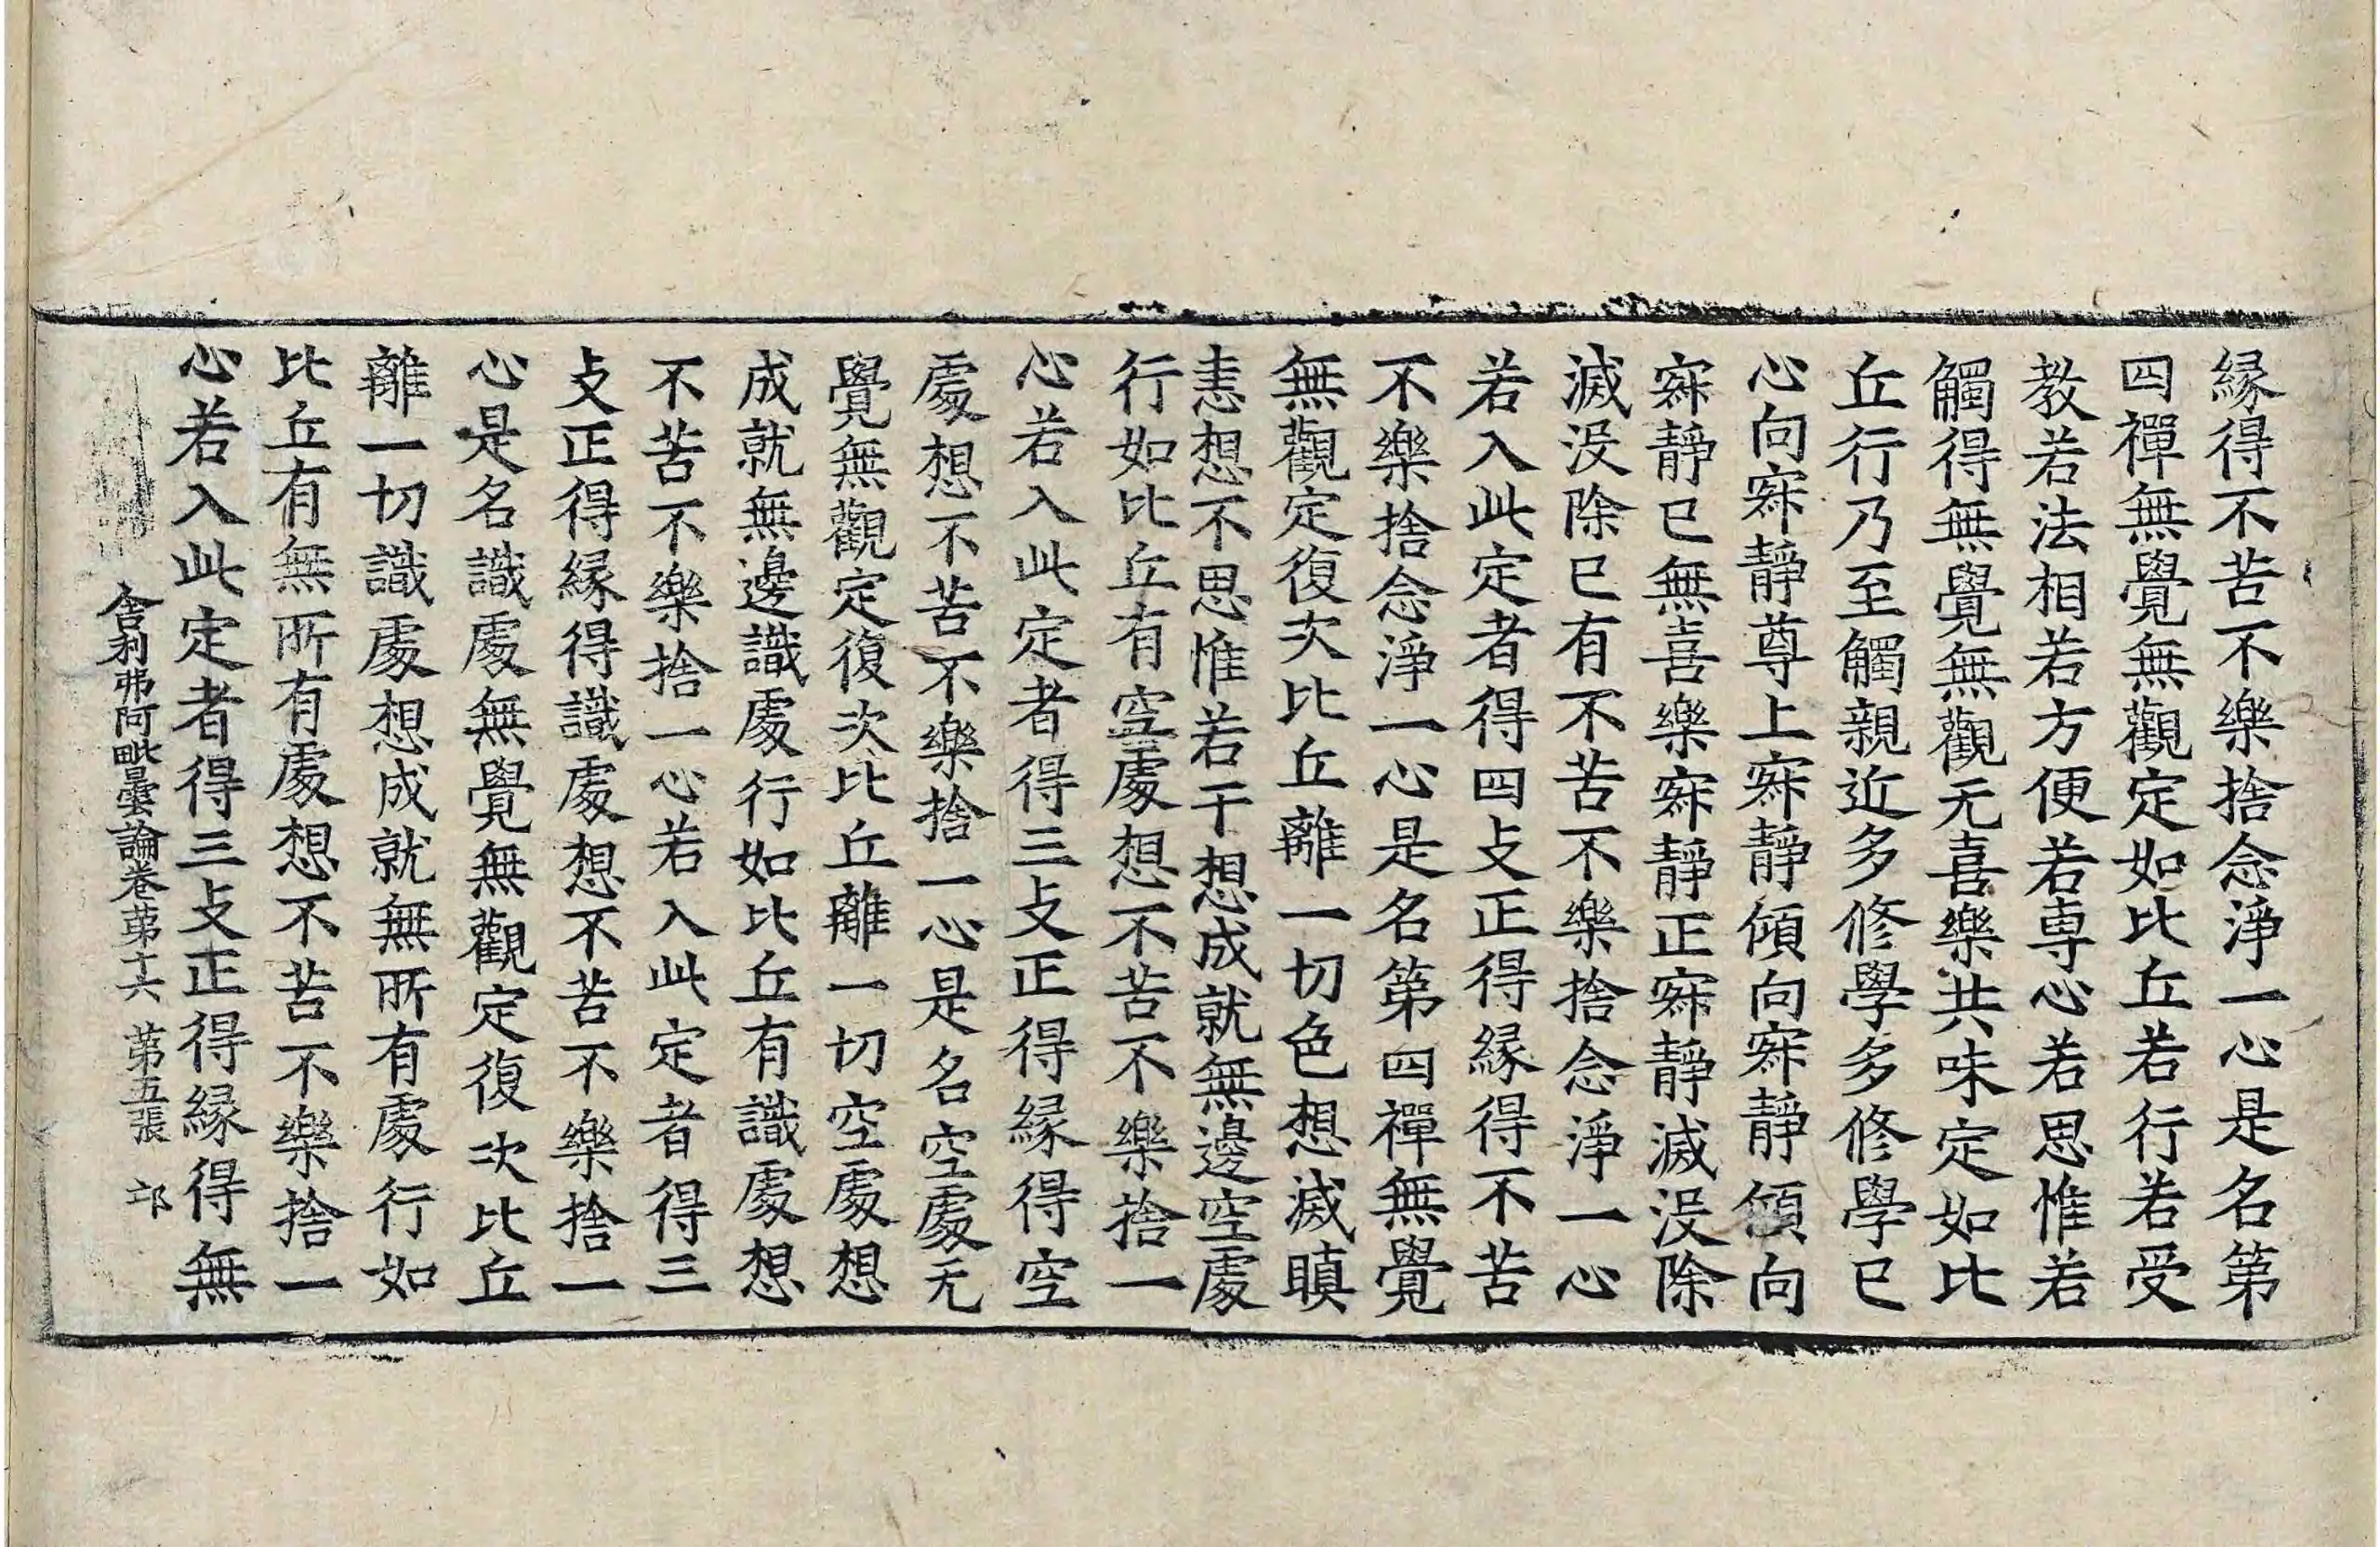 縁得不苦不樂捨念淨一心是名第
四禪無覺無觀定如比丘若行若受
教若法相若方便若専心若思惟若
觸得無覺無觀无喜樂共味定如比
丘行乃至觸親近多修學多修學已
心向寂靜尊上寂靜傾向寂靜傾向
寂靜已無喜樂寂靜正寂靜滅没除
滅没除已有不苦不樂捨念淨一心
若入此定者得四支正得縁得不苦
不樂捨念淨一心是名第四禪無覺
無觀定復次比丘離一切色想滅瞋
恚想不思惟若干想成就無邊空處
行如比丘有空處想不苦不樂捨一
心若入此定者得三支正得縁得空
處想不苦不樂捨一心是名空處无
覺無觀定復次比丘離一切空處想
成就無邊識處行如比丘有識處想
不苦不樂捨一心若入此定者得三
支正得縁得識處想不苦不樂捨一
心是名識處無覺無觀定復次比丘
離一切識處想成就無所有處行如
比丘有無所有處想不苦不樂捨一
心若入此定者得三支正得縁得無
舍利弗阿毗曇論卷第十六 第五張